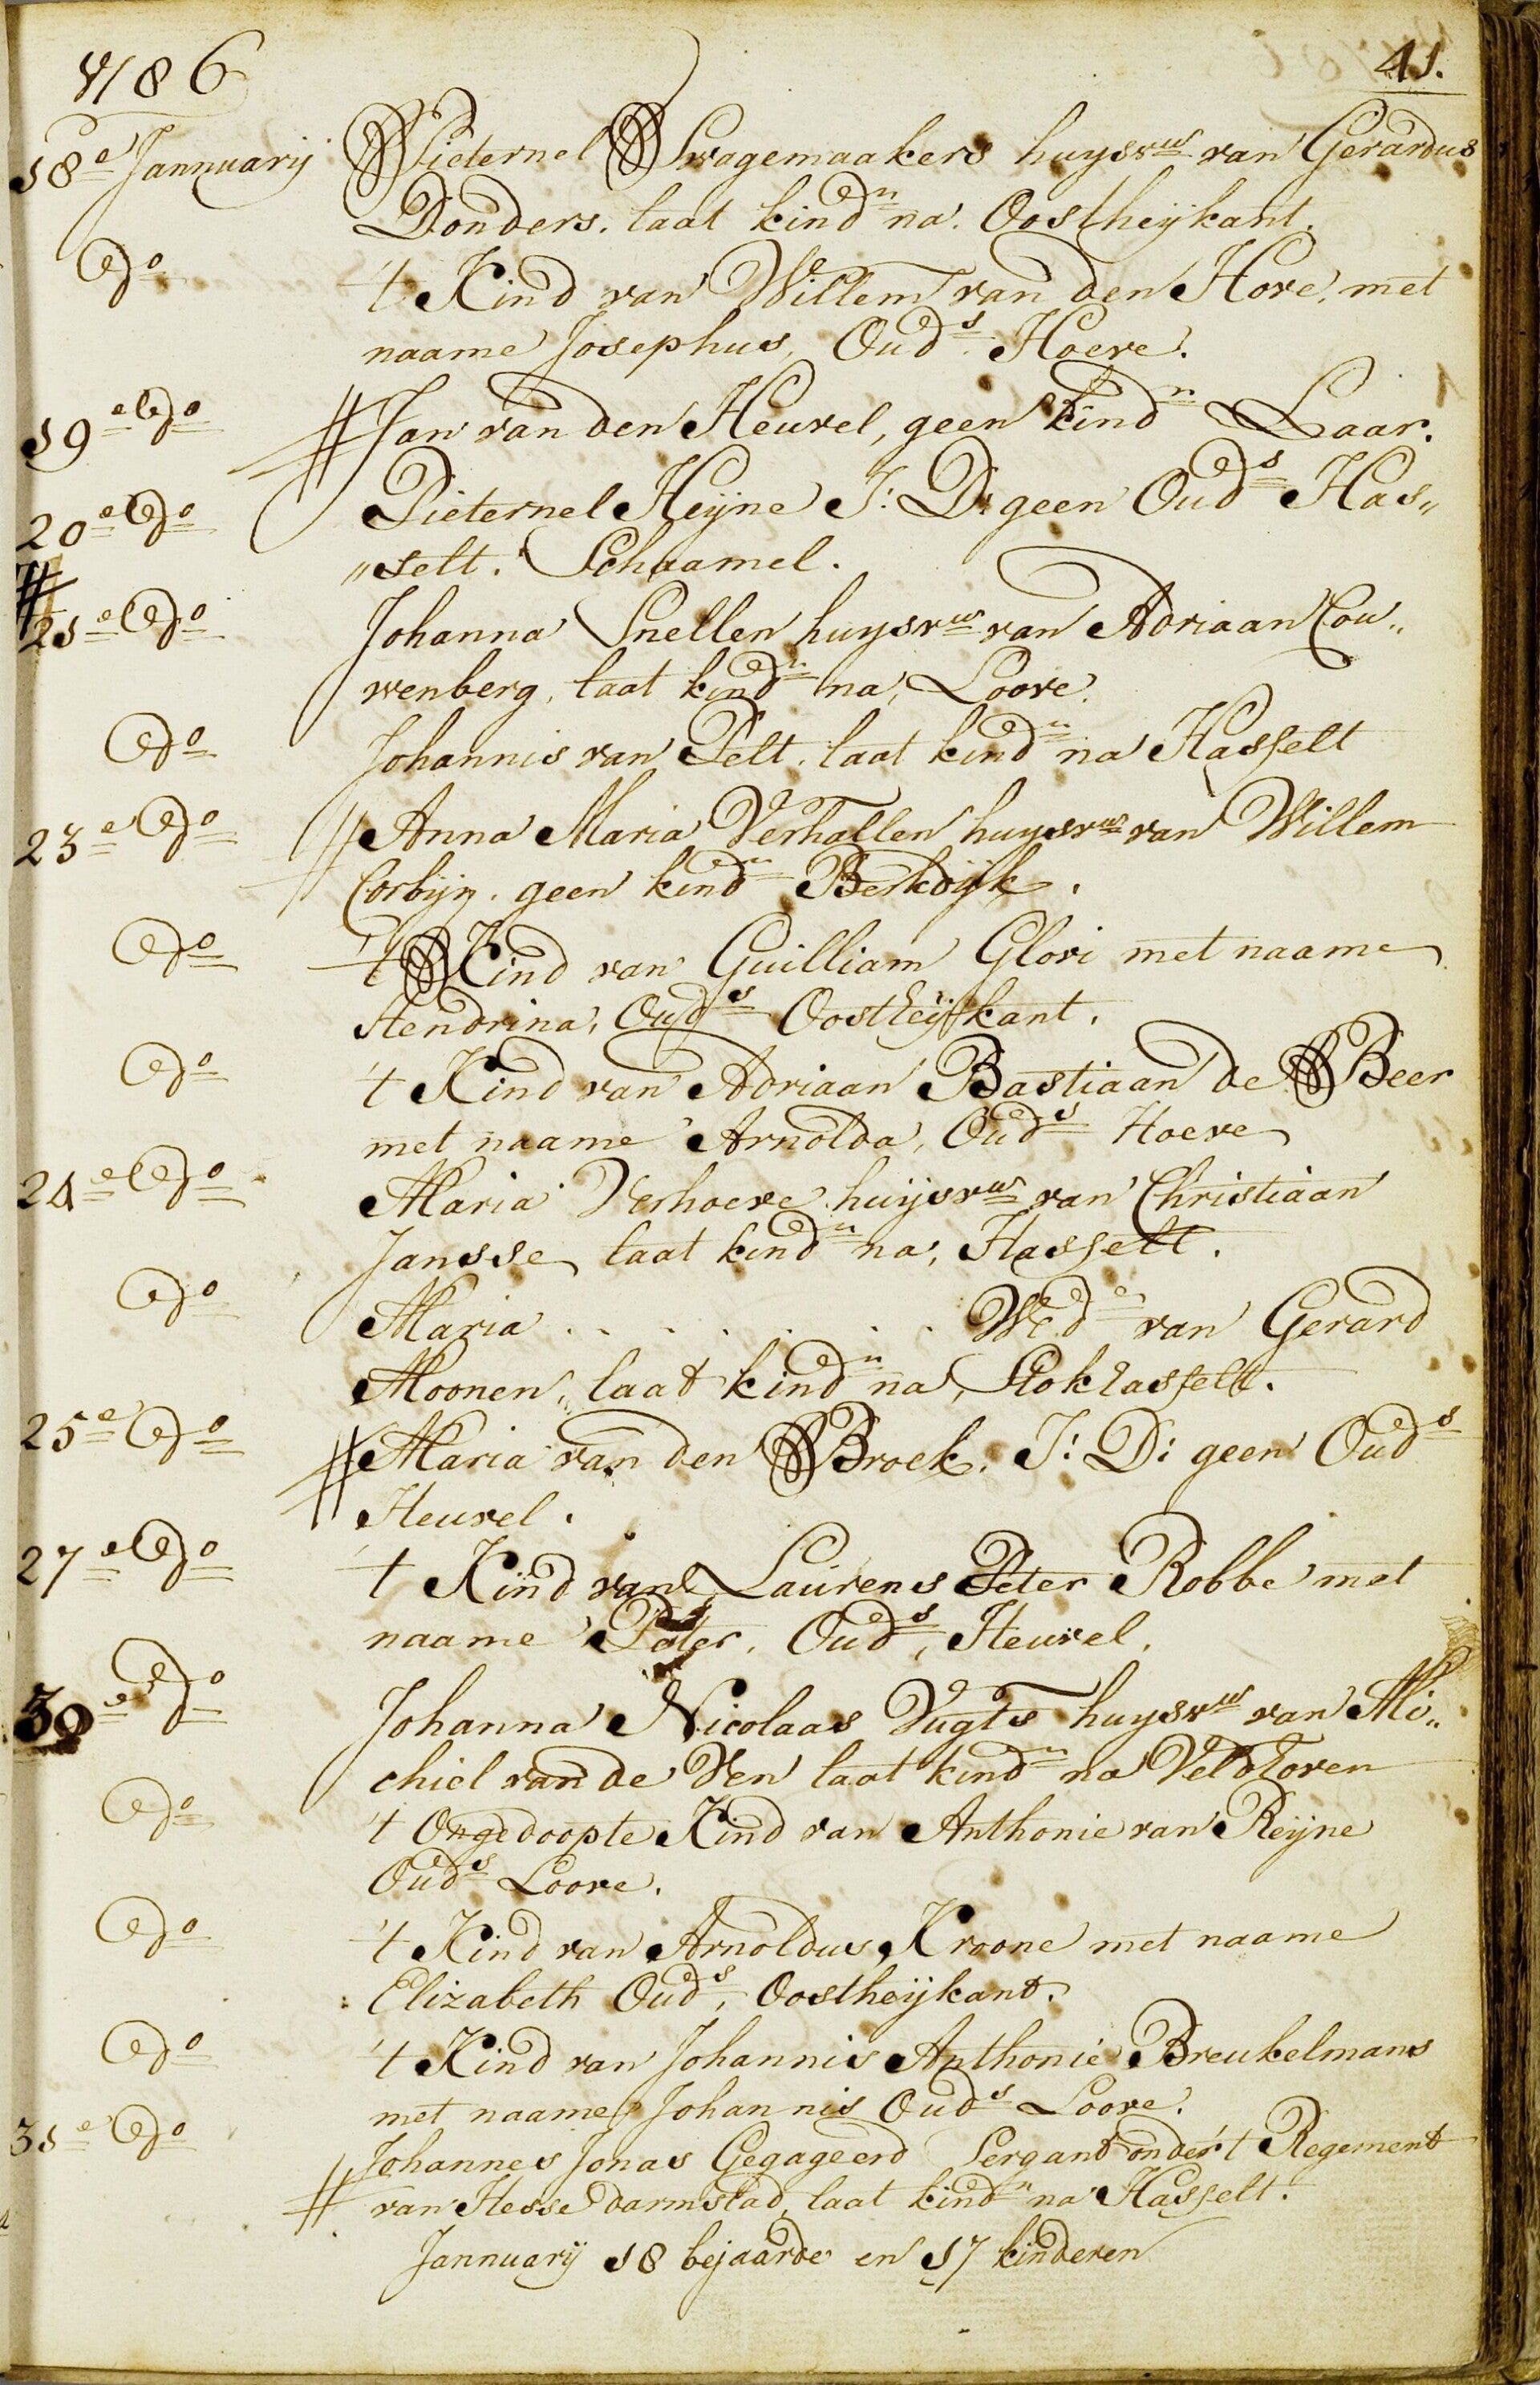 1786 41.
18e Jannuarij Pieternel Swagemaakers huysvw van Gerardus
Donders. laat kindn na. Oostheijkant.
do 't Kind van Willem van den Hove, met
naame Josephus, Ouds Hoeve.
19e do # Jan van den Heuvel, geen kindn Laar.
20e do Pieternel Heijne J: D: geen Ouds Has„
„selt. Schaamel.
#
21e do Johanna Snellen huysvw van Adriaan Cou„
wenberg, laat kindn na, Loove.
do Johannis van Pelt, laat kindn na Hasselt
23e do # Anna Maria Verhallen huysvw van Willem
Corbijn. geen kindn Berkdijk.
do 't Kind van Guilliam Glovi met naame
Hendrina, Ouds Oostheijkant.
do 't Kind van Adriaan Bastiaan de Beer
met naame Arnolda, Ouds Hoeve
24e do Maria Verhoeve huijsvw van Christiaan
Jansse, laat kindn na, Hasselt.
do Maria . . . . . . . . Wede van Gerard
Moonen, laat kindn na, Stokhasselt.
25e do # Maria van den Broek. J: D: geen Ouds
Heuvel.
27e do 't Kind van Laurens Peter Robbe met
naame Peter. Ouds, Heuvel.
30e do Johanna Nicolaas Vugts huysvw van Mi„
chiel van de Ven laat kindn na Veldhoven
do 't Ongedoopte Kind van Anthonie van Reijne
Ouds Loove.
do 't Kind van Arnoldus Kroone met naame
Elizabeth Ouds, Oostheijkant.
do 't Kind van Johannis Anthonie Breukelmans
met naame Johannis Ouds Loove.
31e do Johannes Jonas Gegageerd Sergant onder 't Regement
# van Hesse darmstad, laat kindn na Hasselt.
Jannuarij 18 bejaarde en 17 kinderen